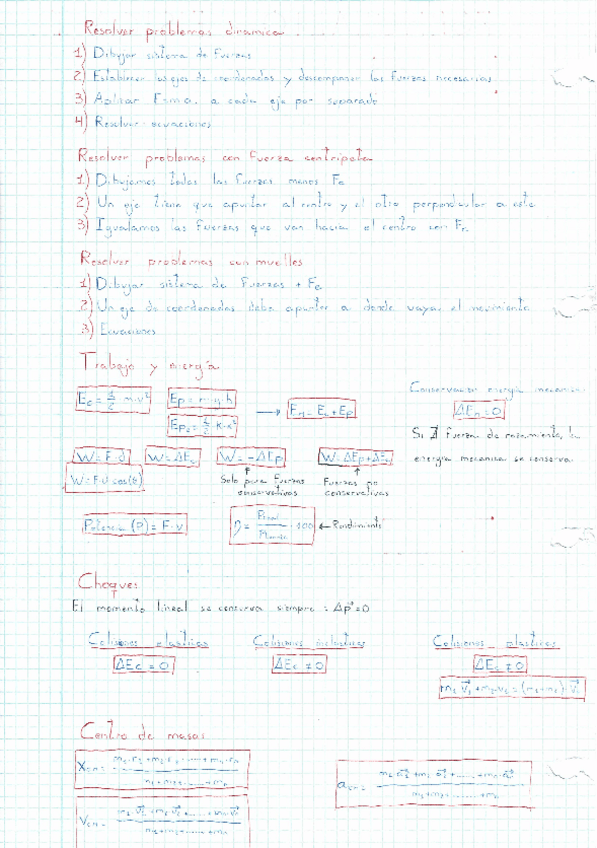 Resolver problemas dinamica
1) Dibujar sistema de fuerzas
2) Establecer los ejes de coordenadas y descomponer las fuerzas necesarias
3) Aplicar F=m·a, a cada eje por separado
4) Resolver ecuaciones
Resolver problemas con fuerza centripeta
1) Dibujamos todas las fuerzas menos Fc
2) Un eje tiene que apuntar al centro y el otro perpendicular a este
3) Igualamos las fuerzas que van hacia el centro con Fc
Resolver problemas con muelles
1) Dibujar sistema de fuerzas + Fe
2) Un eje de coordenadas debe apuntar a donde vaya el movimiento
3) Ecuaciones
Trabajo y energía
Ec = 1/2 m·v²
Ep = m·g·h
Epe = 1/2·k·x²
→ Em = Ec + Ep
Conservacion energia mecanica:
ΔEm = 0
Si ∄ fuerza de rozamiento, la
energia mecanica se conserva
W = F·d
W = ΔEc
W = -ΔEp
W = ΔEp + ΔEc
W = F·d·cos(θ)
Solo para fuerzas
conservativas
Fuerzas no
conservativas
Potencia (P) = F·v
·100 ← Rendimiento
Choques
El momento lineal se conserva siempre: Δp = 0
Colisiones elasticas
Colisiones inelasticas
Colisiones plasticas
ΔEc = 0
ΔEc ≠ 0
ΔEc ≠ 0
Centro de masas